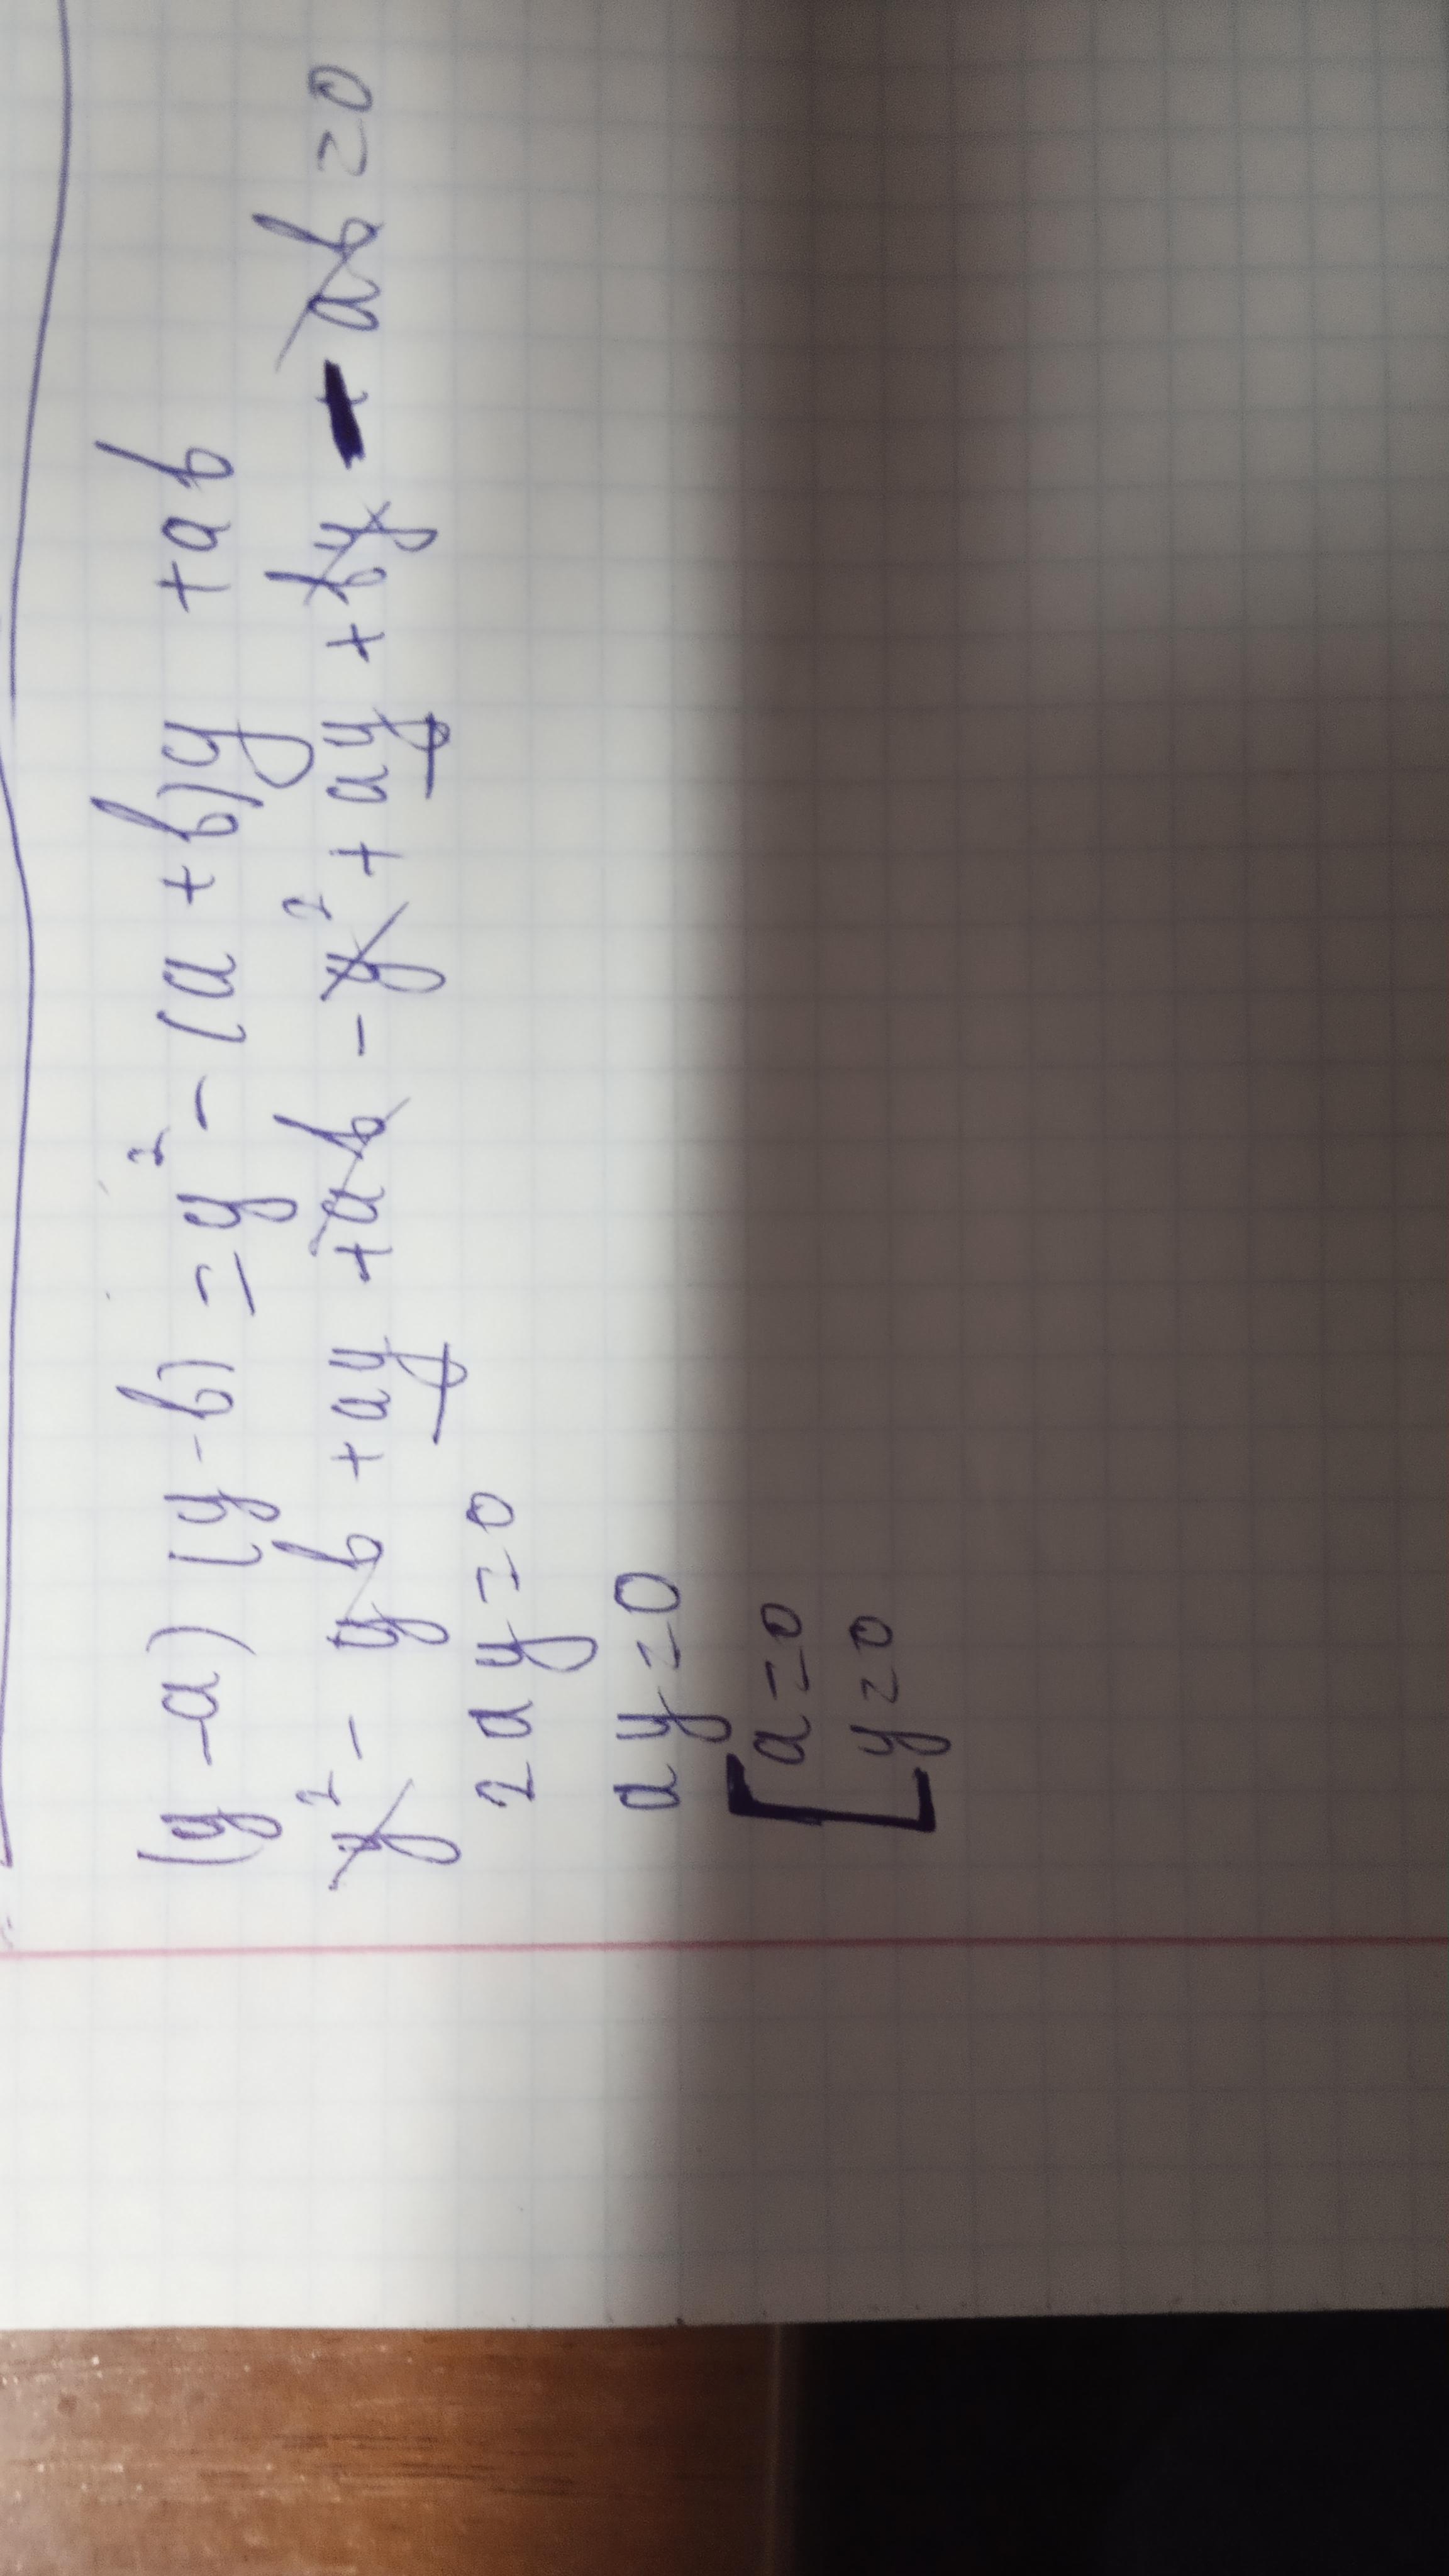 (y-a)(y-b)=y²-(a+b)y+ab
y²-yb+ay+ab-y²+ay+by-ab=0
2ay=0
ay=0
[a=0
y=0